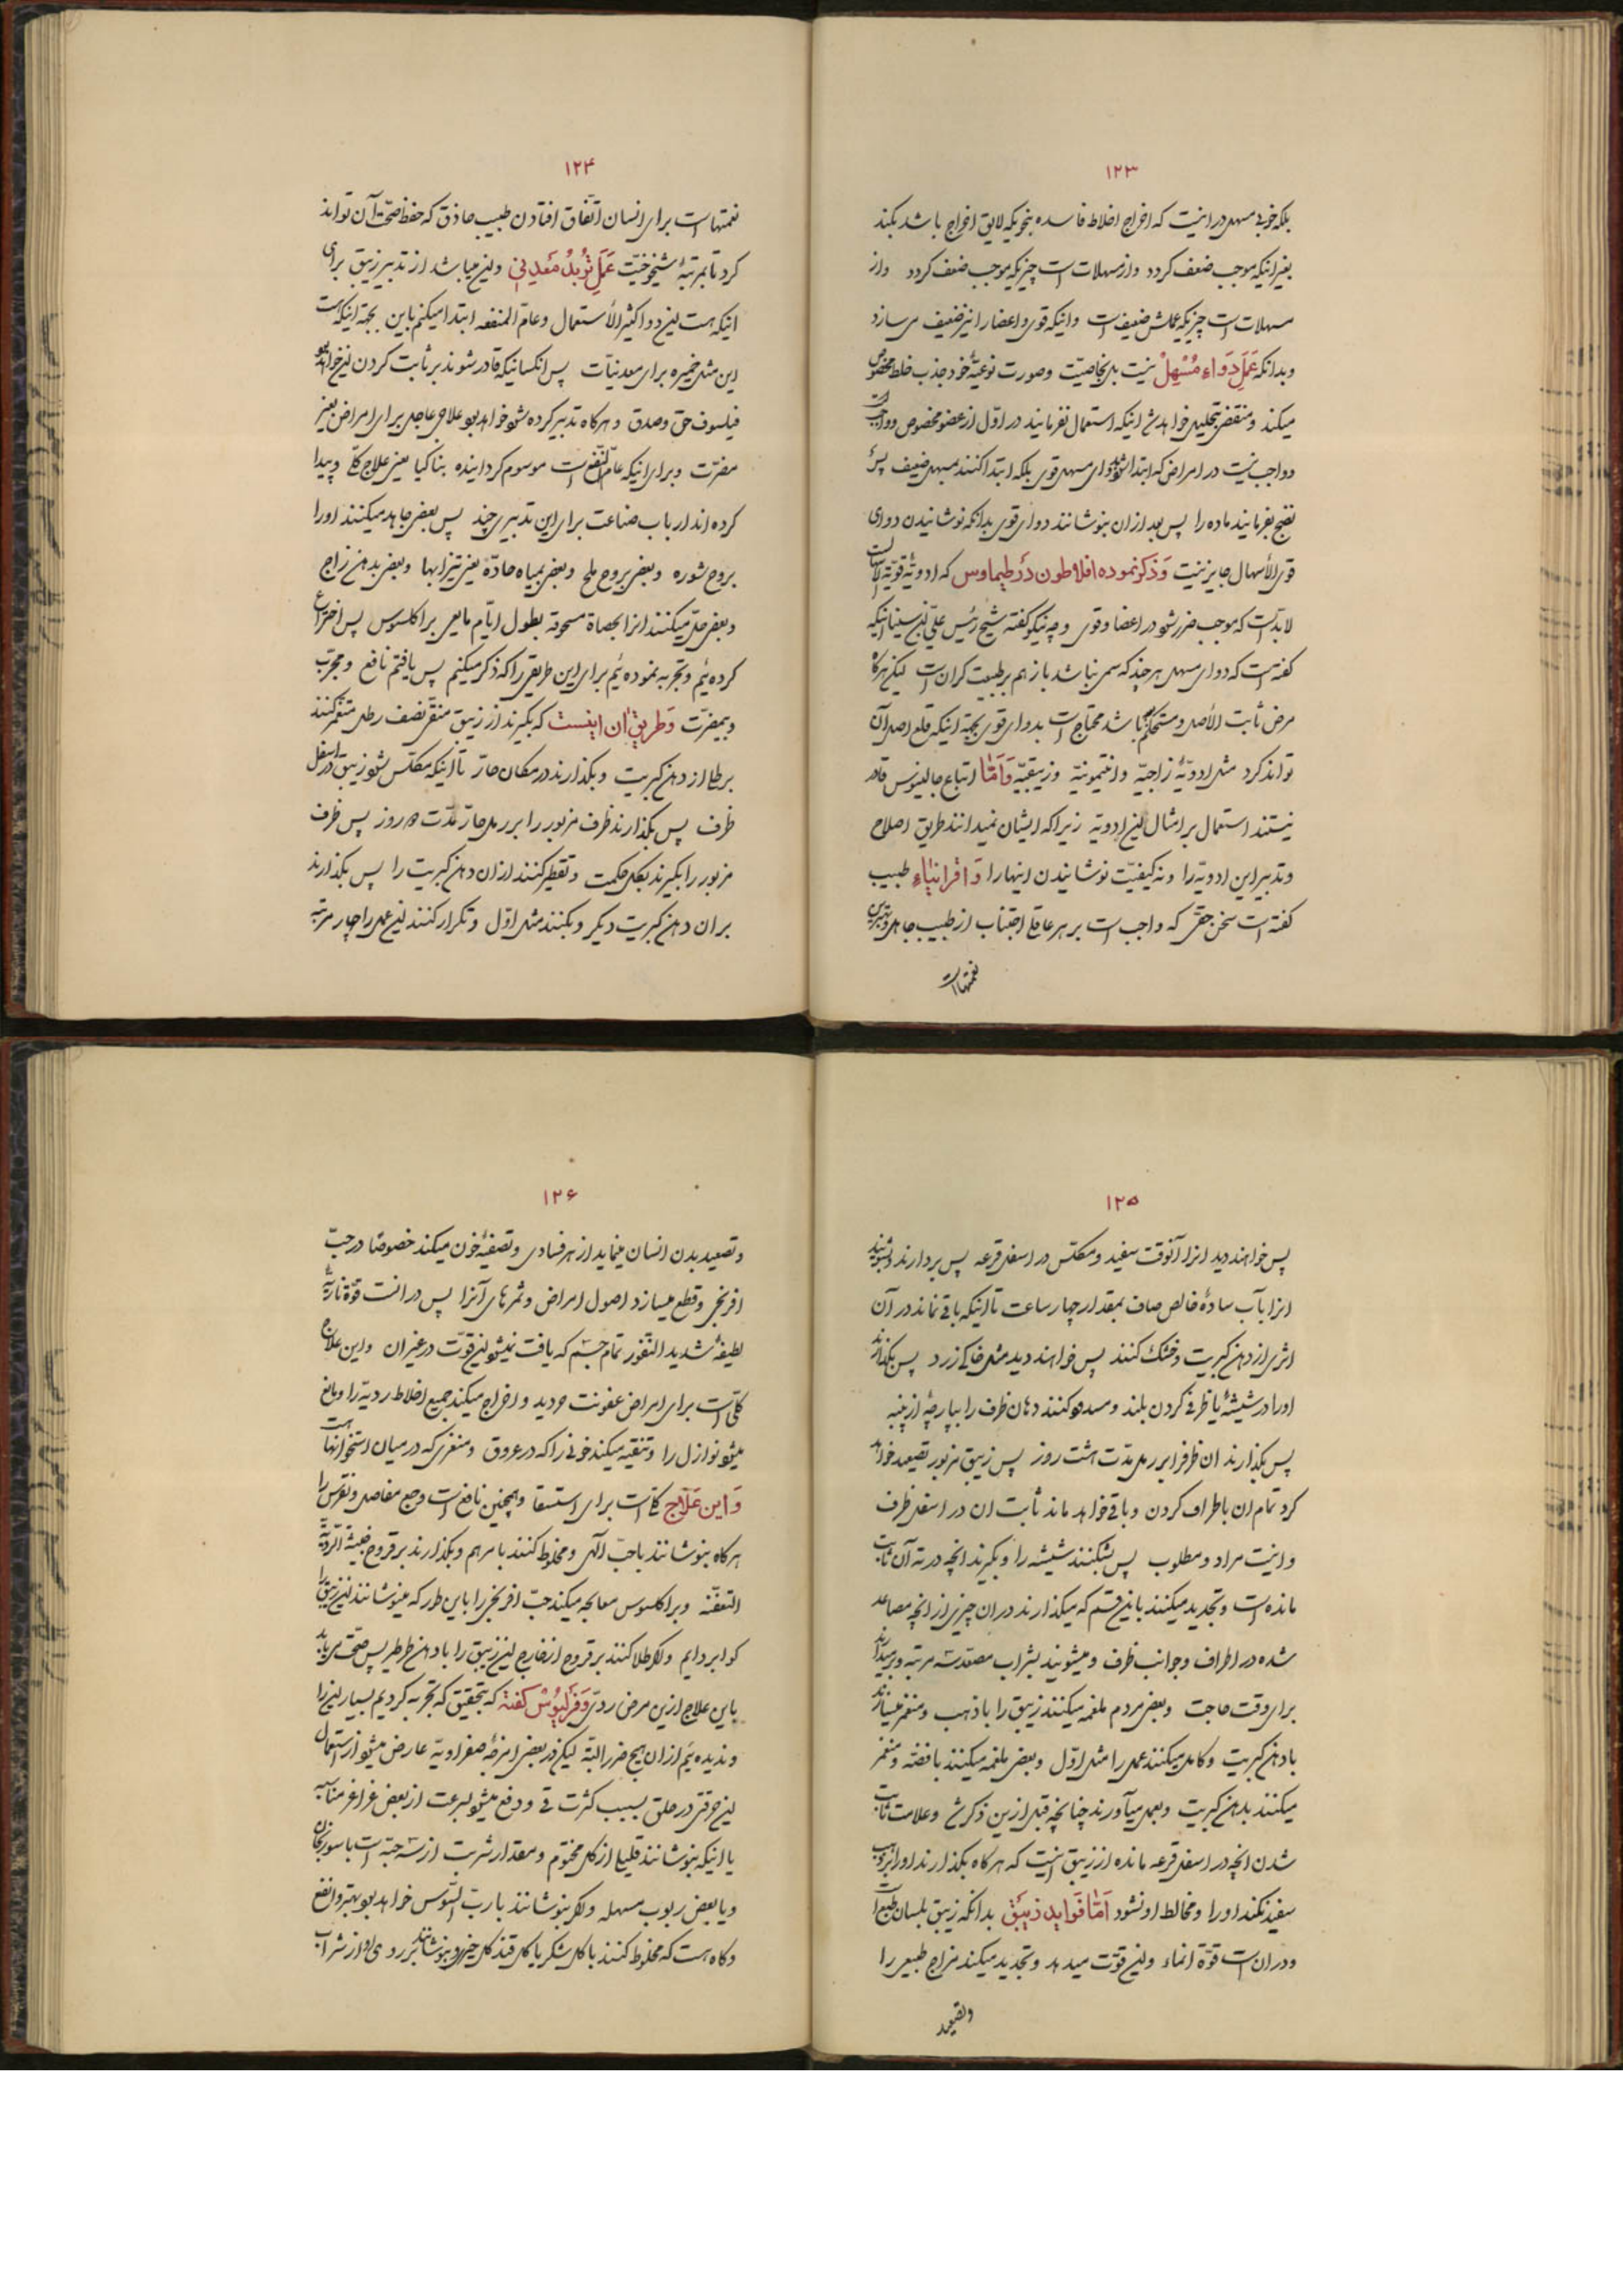 ۱۲۳
بلکه خوبی مسهل در اینست که اخراج اخلاط فاسده بنحویکه لایق اخراج باشد بکند
بغیر اینکه موجب ضعف کردد و از مسهلات است چیزیکه موجب ضعف کردد و از
مسهلات است چیزیکه عملش ضعیف است و اینکه قوی و اعضا را نیز ضعیف می سازد
و بدانکه عَمَلِ دَواءِ مُسْهِلْ نیست بل بخاصیت و صورت نوعیّهٔ خود جذب خلط مخصوص
میکند و منقض بتحلیل خواهد شد اینکه استعمال نفرمایند در اوّل از عضو مخصوص
و واجب نیست در امراض که ابتدا شود بدوای مسهل قوی بلکه ابتدا کنند بمسهل ضعیف پس
نضج بفرمایند ماده را پس بعد از ان بنوشانند دوای قوی بدانکه نوشانیدن دوای
قوی الأسهال جایز نیست وَ ذکر نموده افلاطون در طیماوس که ادویهٔ قویة الاسهال
لابدّ است که موجب ضرر شود در اعضا و قوی و چه نیکو کفته شیخ رئیس علیّ بن سینا اینکه
کفته است که دوای مسهل هر چند که سمی نباشد باز هم بر طبیعت کران است لیکن هرکاه
مرض ثابت الأصل و مستحکم باشد محتاج است بدوای قوی بجهة اینکه قلع اصل آن
تواند کرد مثل ادویّهٔ زاجیّه و انتیمونیّه و زیبقیّه وَ اَمّا اتباع جالینوس قادر
نیستند استعمال بر امثال این ادویه زیرا که ایشان نمیدانند طریق اصلاح
و تدبیر این ادویه را و نه کیفیّت نوشانیدن اینها را وَ اقرانیاءِ طبیب
کفته است سخن حقّی که واجب است بر هر عاقل اجتناب از طبیب جاهل و بهترین
نعمتها است
۱۲۴
نعمتها است برای انسان اتّفاق افتادن طبیب حاذق که حفظ صحّت آن تواند
کرد تا بمرتبهٔ شیخوخیّت عَمَلِ تُربُدُ مَعدِنی و این میباشد از تدبیر زیبق برای
اینکه هست این دوا کثیر الأستعمال و عامّ المنفعه ابتدا میکنم باین بجهة اینکه هست
این مثل خمیره برای معدنیّات پس انکسانیکه قادر شوند بر ثابت کردن این خواهد بود
فیلسوف حق و صدق و هرکاه تدبیر کرده شود خواهد بود علاجی عاجل برای امراض بغیر
مضرّت و برای اینکه عامّ النّفع است موسوم کردانیده بناکیا یعنی علاج کلّی و پیدا
کرده اند ارباب صناعت برای این تدبیری چند پس بعضی جاهد میکنند او را
بروح شوره و بعضی بروح ملح و بعضی بمیاه حادّه یعنی تیزابها و بعضی بدهن زاج
و بعضی حلّ میکنند انرا بحصاة مسحوقه بطول ایّام مابعی براکلسوس پس اختراع
کرده ئیم و تجربه نموده ئیم برای این طریقی را که ذکر میکنیم پس یافتیم نافع و مجرّب
و بیمضرّت وَ طریق ان اینست که بکیرند از زیبق منقّی نصف رطل منغمر کنند
برطل از دهن کبریت و بکذارند در مکان حارّ تا اینکه مکلّس شود زیبق در اسفل
ظرف پس بکذارند ظرف مزبور را بر رمل حارّ مدّت ۵ روز پس ظرف
مزبور را بکیرند بکل حکمت و تقطیر کنند از ان دهن کبریت را پس بکذارند
بر ان دهن کبریت دیکر و بکنند مثل اوّل و تکرار کنند این عمل را چهار مرتبه
۱۲۵
پس خواهند دید انرا آنوقت سفید و مکلّس در اسفل قرعه پس بردارند و بشویند
انرا بآب سادهٔ خالص صاف بمقدار چهار ساعت تا اینکه باقی نماند در آن
اثری از دهن کبریت و خشک کنند پس خواهند دید مثل خاکی زرد پس بکذارند
او را در شیشهٔ یا ظرفی کردن بلند و مسدود کنند دهان ظرف را بپارچهٔ از پنبه
پس بکذارند ان ظرفرا بر رمل مدّت هشت روز پس زیبق مزبور تصعید خواهد
کرد تمام ان باطراف کردن و باقی خواهد ماند ثابت ان در اسفل ظرف
و اینست مراد و مطلوب پس بشکنند شیشه را و بکیرند انچه در ته آن ثابت
مانده است و تجدید میکنند باین قسم که میکذارند در ان چیزی از انچه مصاعد
شده در اطراف و جوانب ظرف و میشویند بشراب مصعّد سه مرتبه و برمیدارند
برای وقت حاجت و بعضی مردم ملغمه میکنند زیبق را با ذهب و منغمر میسازند
با دهن کبریت و کامل میکنند عمل را مثل اوّل و بعضی ملغمه میکنند با فضّه و منغمر
میکنند بدهن کبریت و بعمل میآورند چنانچه قبل ازین ذکر شد و علامت ثابت
شدن انچه در اسفل قرعه مانده از زیبق اینست که هرکاه بکذارند او را بر ذهب
سفید نکند او را و مخالط او نشود اَمّا فَوایِدِ زیبَق بدانکه زیبق بلسان طبع است
و در ان است قوّة انماء و این قوّت میدهد و تجدید میکند مزاج طبیعی را
و تصعید
۱۲۶
و تصعید بدن انسان مینماید از هر فسادی و تصفیهٔ خون میکند خصوصًا در حبّ
افرنجی و قطع میسازد اصول امراض و ثمرهای آنرا پس در انست قوّهٔ ناریّهٔ
لطیفهٔ شدید النّفوذ تمام جسم که یافت نمیشود این قوّت در غیر ان و این علاج
کلّی است برای امراض عفونت و دیدد و اخراج میکند جمیع اخلاط ردیّه را و مانع
میشود نوازل را و تنقیه میکند خونی را که در عروق و منغزی که در میان استخوانها است
وَ این عَلاج کلّی است برای استسقا و همچنین نافع است وجع مفاصل و نقرس را
هرکاه بنوشانند با حبّ الهی و مخلوط کنند با مرهم و بکذارند بر قروح خبیثة الرّدیّة
التعفّنه و براکلسوس معالجه میکند حبّ افرنجی را باین طور که مینوشانند این زیبق را
کوابردایم و لاکن طلا کنند بر قروح از خارج این زیبق را با دهن طرطیر پس صحّت می یابد
باین علاج ازین مرض ردی وَ قرلیوُسْ کفته که بتحقیق که تجربه کردیم بسیار این را
و ندیده ئیم از ان هیچ ضرر البتّه لیکن در بعضی امزجهٔ صفراویّه عارض میشود از استعمال
این حرقتی در حلق بسبب کثرت قی و دفع میشود بسرعت از بعض غراغر مناسبه
یا اینکه بنوشانند قلیلی از کل مختوم و مقدار شربت از سه حبّه است با سورنجان
و یا بعض ربوب مسهله و لاکن بنوشانند با ربّ السّوس خواهد بود بهتر و انفع
و کاه هست که مخلوط کنند با کل شکر یا کل قند کل خیری و بنوشانند بر روی او از شراب